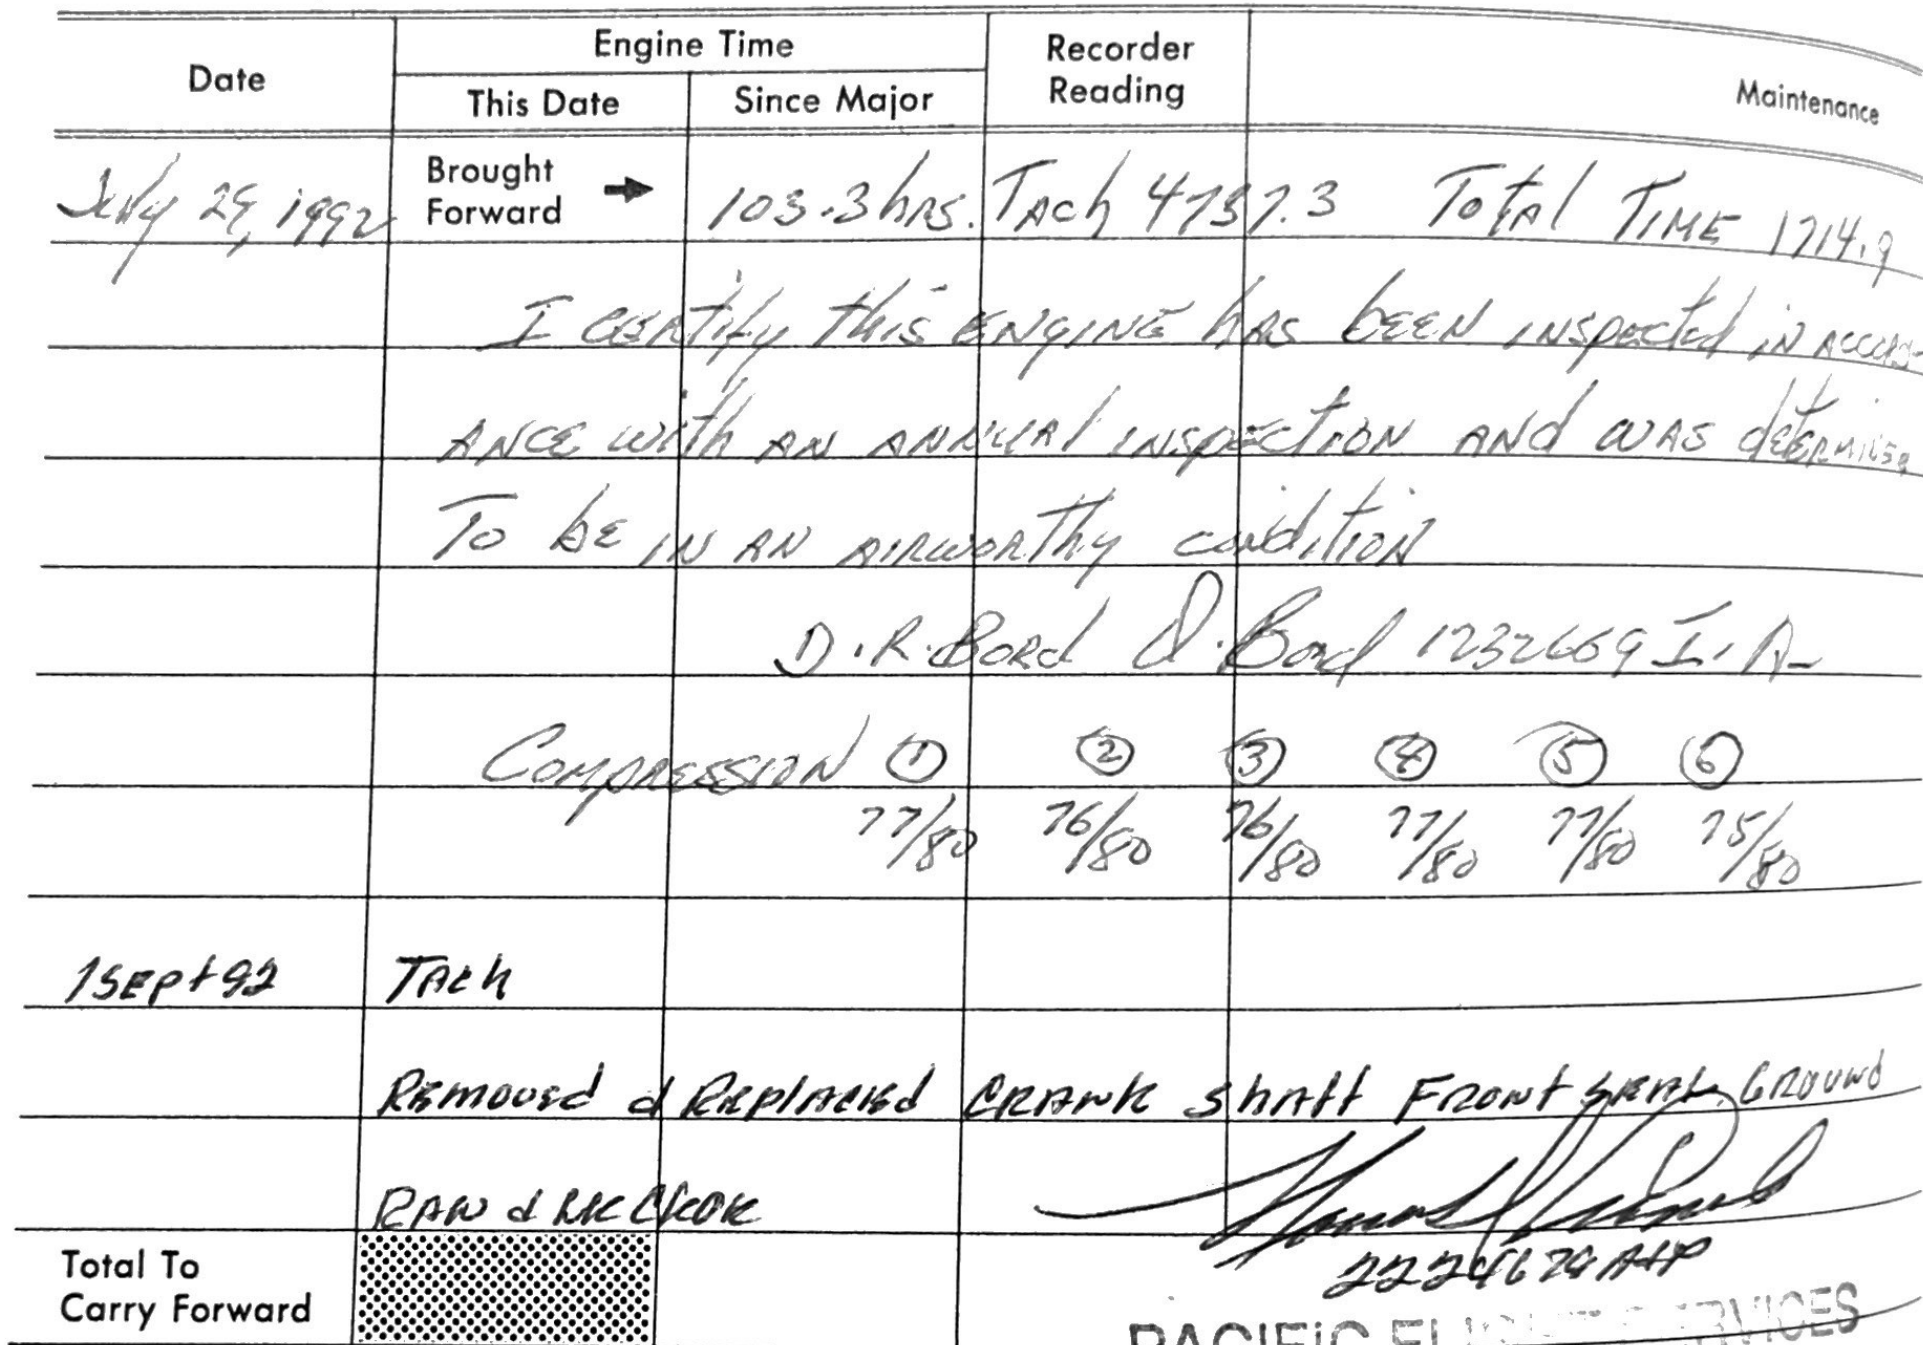 Date
Engine Time
This Date
Since Major
Recorder
Reading
Maintenance
July 29, 1992
Brought
Forward
103.3 hrs. Tach 4737.3 Total Time 1714.9
I certify this engine has been inspected in accord-
ance with an annual inspection and was determined
To be in an airworthy condition
D.R. Bord 1232669 I.A.
Compression ① ② ③ ④ ⑤ ⑥
77/80 76/80 76/80 77/80 77/80 75/80
1 Sept 92 Tach
Removed & Replaced crank shaft Front seal, Ground
RAN & LK CK OK
2224674 A+P
Total To
Carry Forward
PACIFIC FLIGHT SERVICES